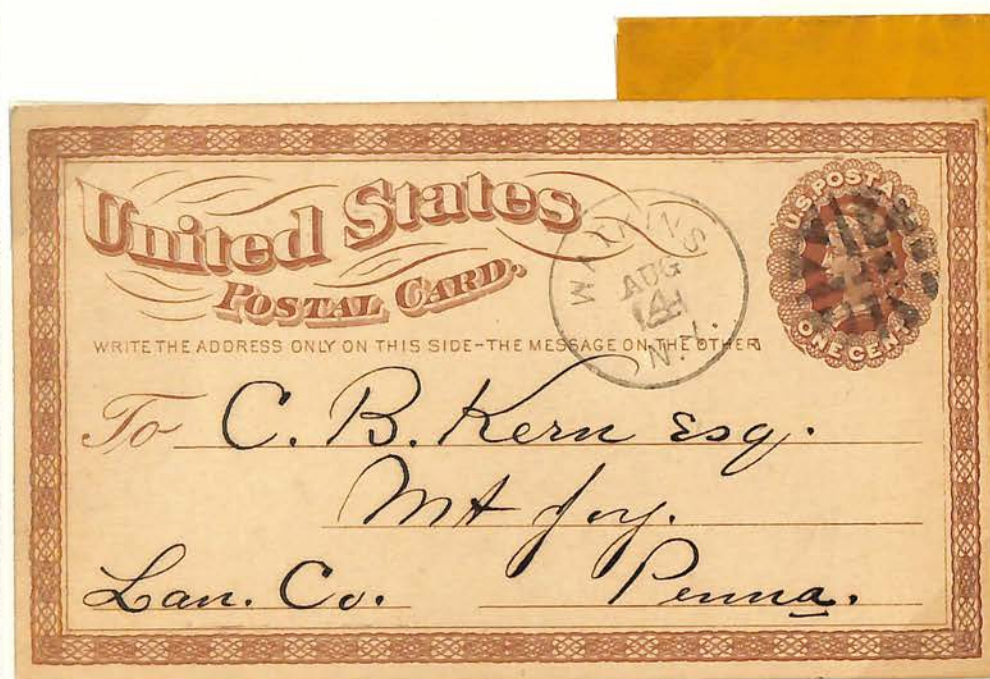 United States
POSTAL CARD.
WRITE THE ADDRESS ONLY ON THIS SIDE-THE MESSAGE ON THE OTHER
U.S. POSTAGE
ONE CENT
AUG
14
N.Y.
To C. B. Kern Esq.
Mt Joy.
Lan. Co. Penna.